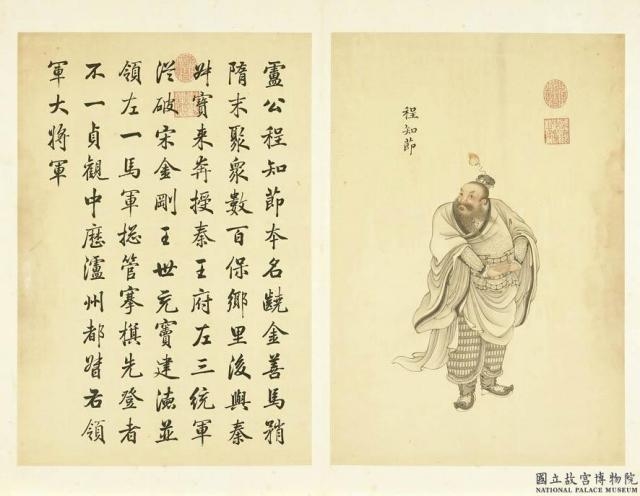 程知節
盧公程知節本名齩金善馬矟
隋末聚衆數百保鄉里後與秦
叔寶來奔授秦王府左三統軍
從破宋金剛王世充竇建德並
領左一馬軍總管搴旗先登者
不一貞觀中歷瀘州都督右領
軍大將軍
國立故宮博物院
NATIONAL PALACE MUSEUM